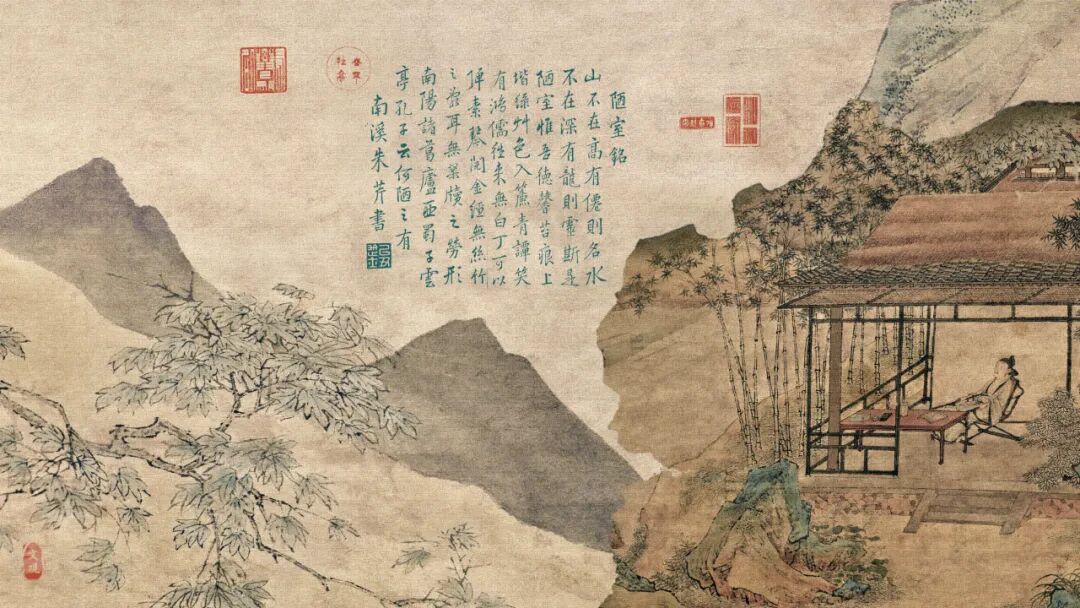 陋室銘
山不在高有僊則名水
不在深有龍則靈斯是
陋室惟吾德馨苔痕上
堦綠艸色入簾青譚笑
有鴻儒往来無白丁可以
弾素琴閲金經無絲竹
之亂耳無案牘之勞形
南陽諸葛廬西蜀子雲
亭孔子云何陋之有
南溪朱芹書